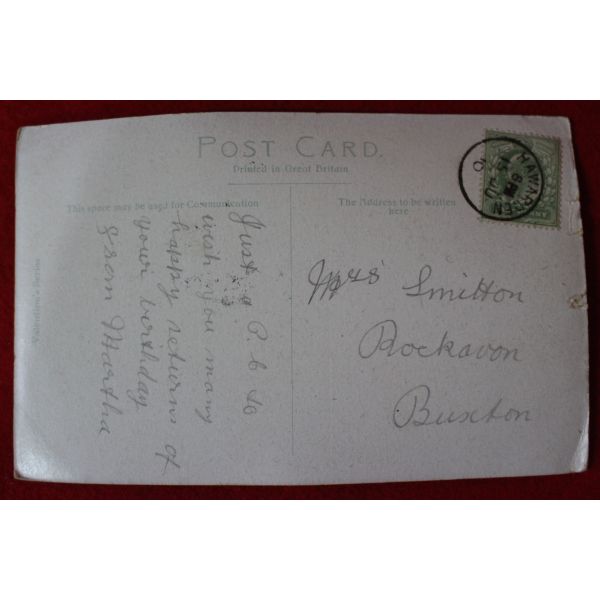 POST CARD.
Printed in Great Britain
This space may be used for Communication
The Address to be written
here
Just a P. C to
wish you many
happy returns of
your birthday
From Martha
Mrs Smitton
Rockavon
Buxton
HAWARDEN